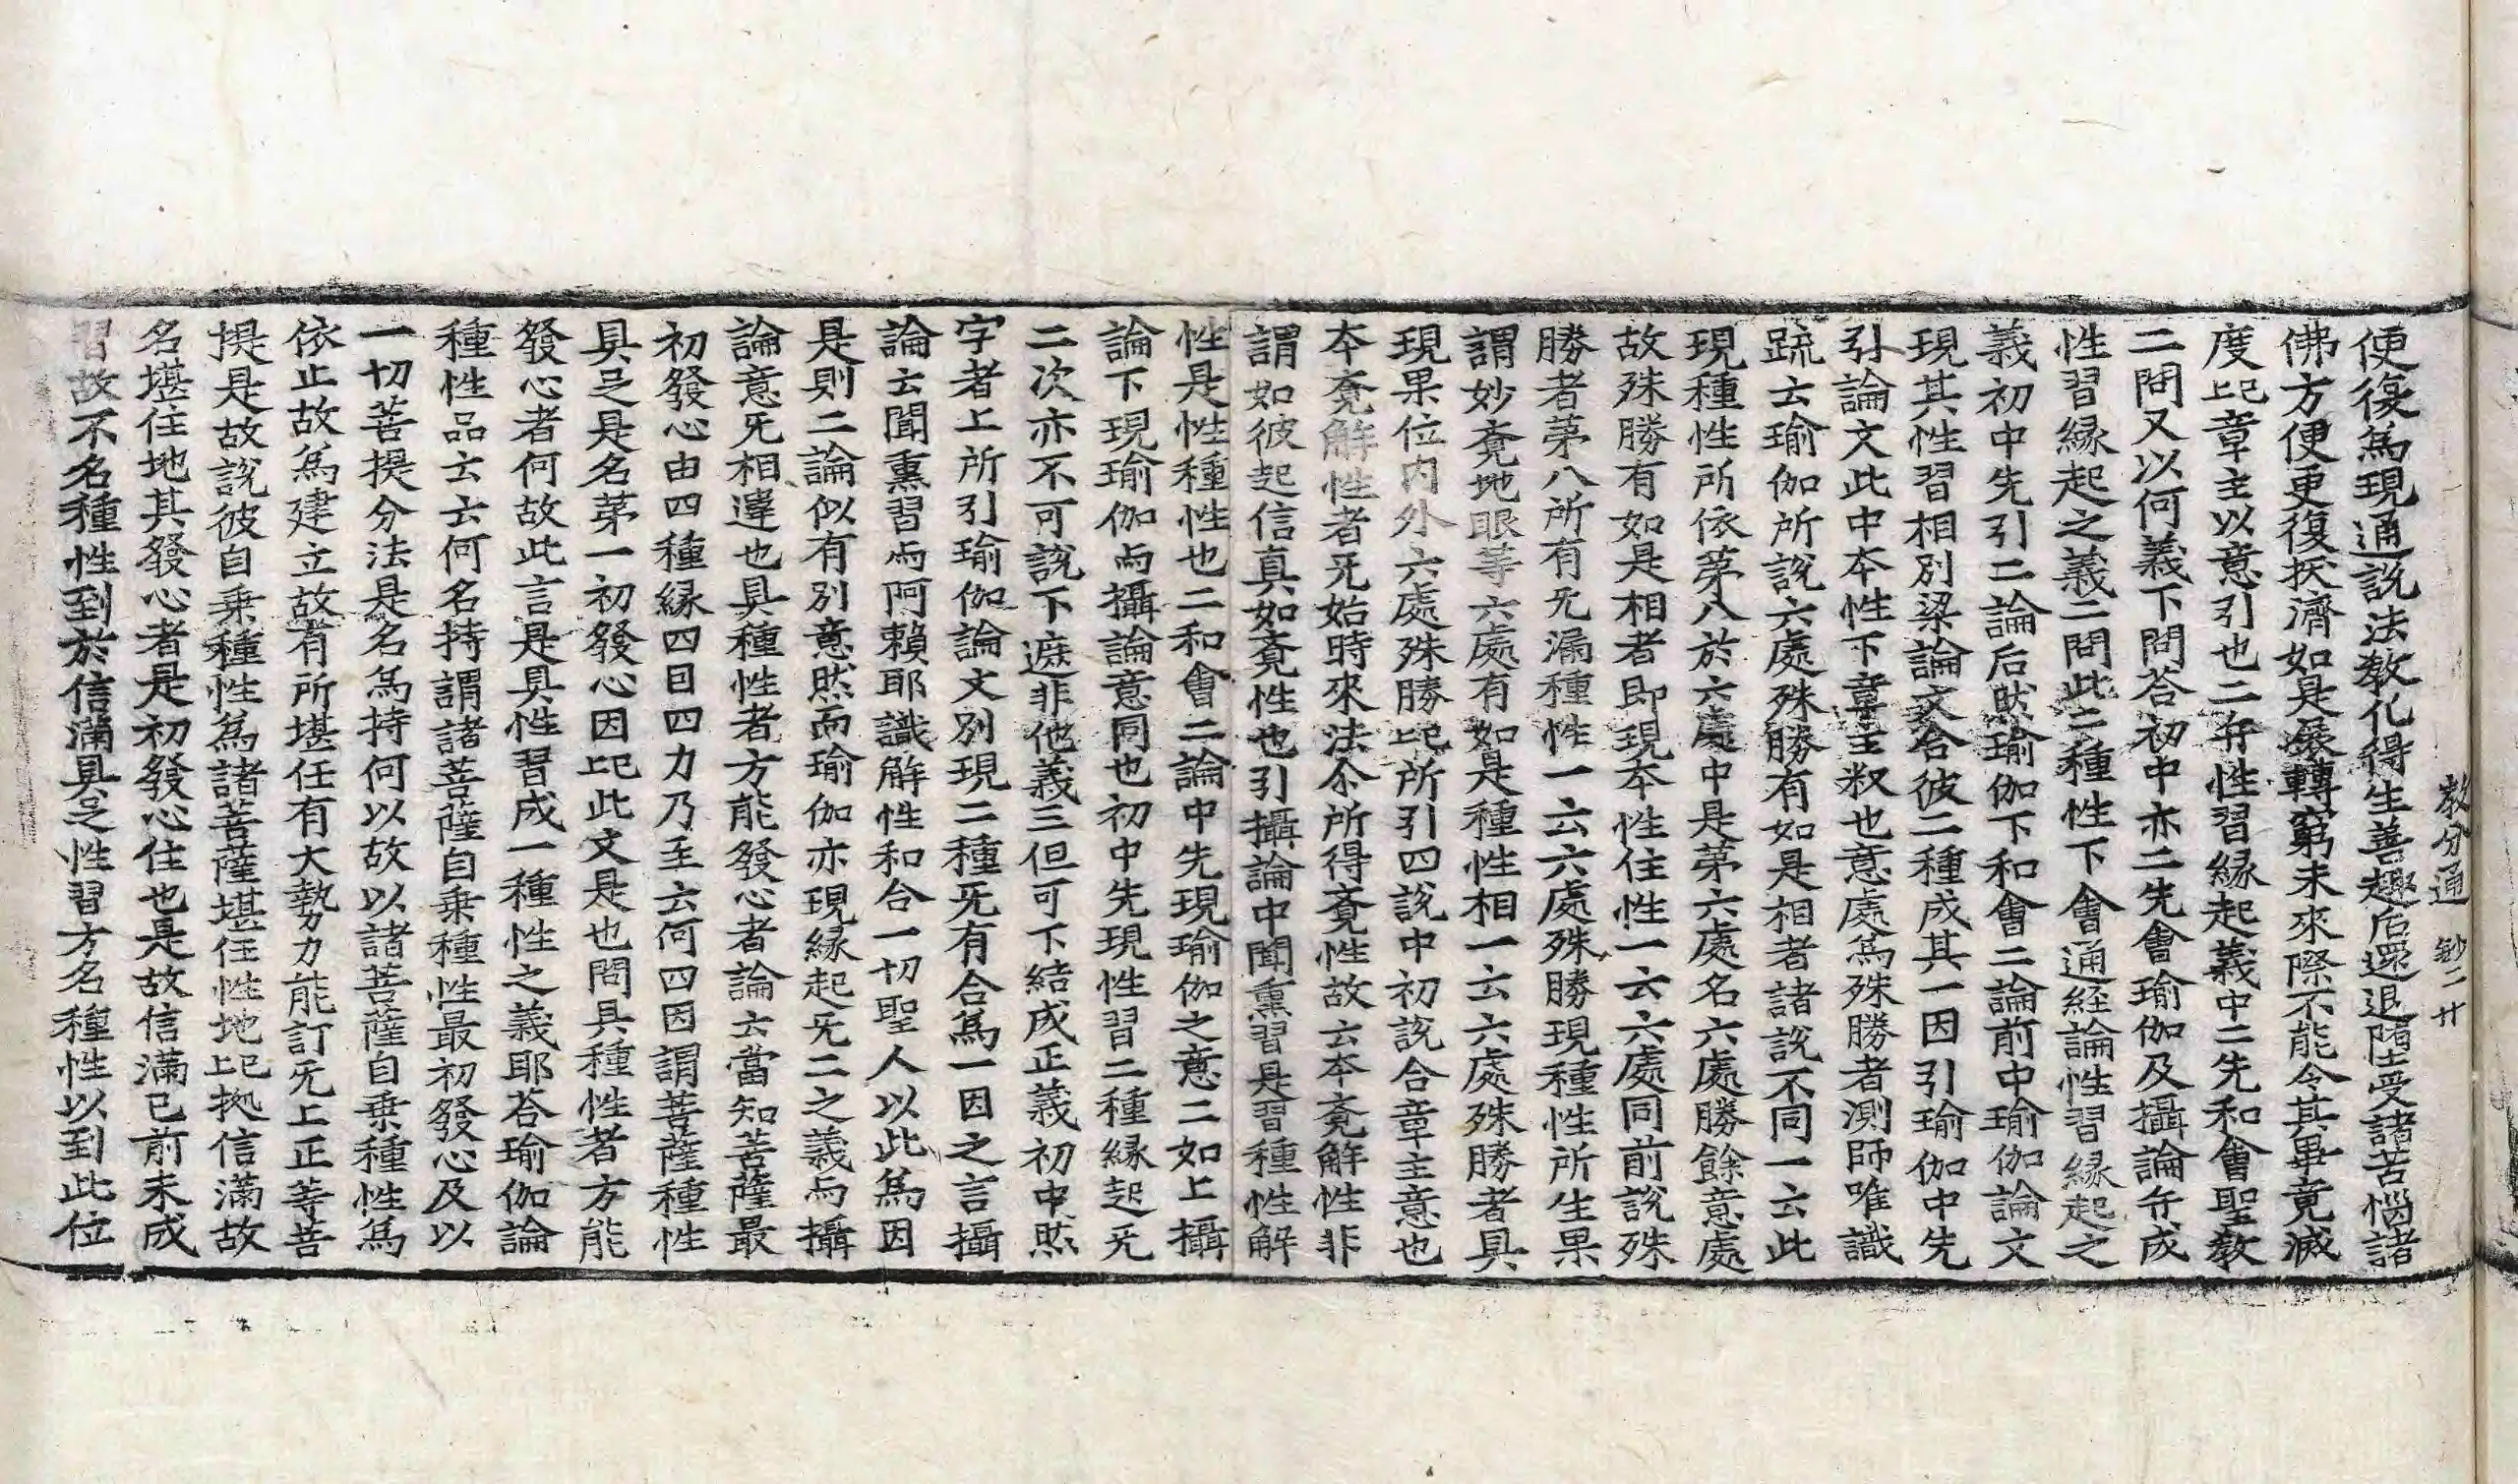 教分通 鈔二 廿
便復為現通說法教化得生善趣后還退墮受諸苦惱諸
佛方便更復拔濟如是展轉窮未來際不能令其畢竟滅
度上巳章主以意引也二弁性習緣起義中二先和會聖敎
二問又以何義下問荅初中亦二先會瑜伽及攝論弁成
性習緣起之義二問此二種性下會通經論性習緣起之
義初中先引二論后然瑜伽下和會二論前中瑜伽論文
現其性習相別梁論文合彼二種成其一因引瑜伽中先
引論文此中夲性下章主㪽也意處為殊勝者測師唯識
䟽云瑜伽所說六處殊勝有如是相者諸說不同一云此
現種性所依苐八於六處中是苐六處名六處勝餘意處
故殊勝有如是相者即現夲性住性一云六處同前說殊
勝者苐八所有无漏種性一云六處殊勝現種性所生果
謂妙覔地眼等六處有如是種性相一云六處殊勝者具
現果位內外六處殊勝上巳所引四說中初說合章主意也
夲覔解性者旡始時來法尒所得覔性故云夲覔解性非
謂如彼起信真如覔性也引攝論中聞熏習是習種性解
性是性種性也二和會二論中先現瑜伽之意二如上攝
論下現瑜伽與攝論意同也初中先現性習二種緣起无
二次亦不可說下遮非他義三但可下結成正義初中㸔
字者上所引瑜伽論文別現二種旡有合為一因之言攝
論云聞熏習與阿賴耶識解性和合一切聖人以此為因
是則二論似有別意然而瑜伽亦現緣起旡二之義與攝
論意旡相違也具種性者方能發心者論云當知菩薩最
初發心由四種緣四因四力乃至云何四因謂菩薩種性
具足是名苐一初發心因上巳此文是也問具種性者方能
發心者何故此言是具性習成一種性之義耶荅瑜伽論
種性品云云何名持謂諸菩薩自乗種性最初發心及以
一切菩提分法是名為持何以故以諸菩薩自乗種性為
依止故為建立故有所堪任有大勢力能訂旡上正等菩
提是故說彼自乗種性為諸菩薩堪任性地上巳㨿信滿故
名堪住地其發心者是初發心住也是故信滿已前未成
習故不名種性到於信滿具足性習方名種性以到此位